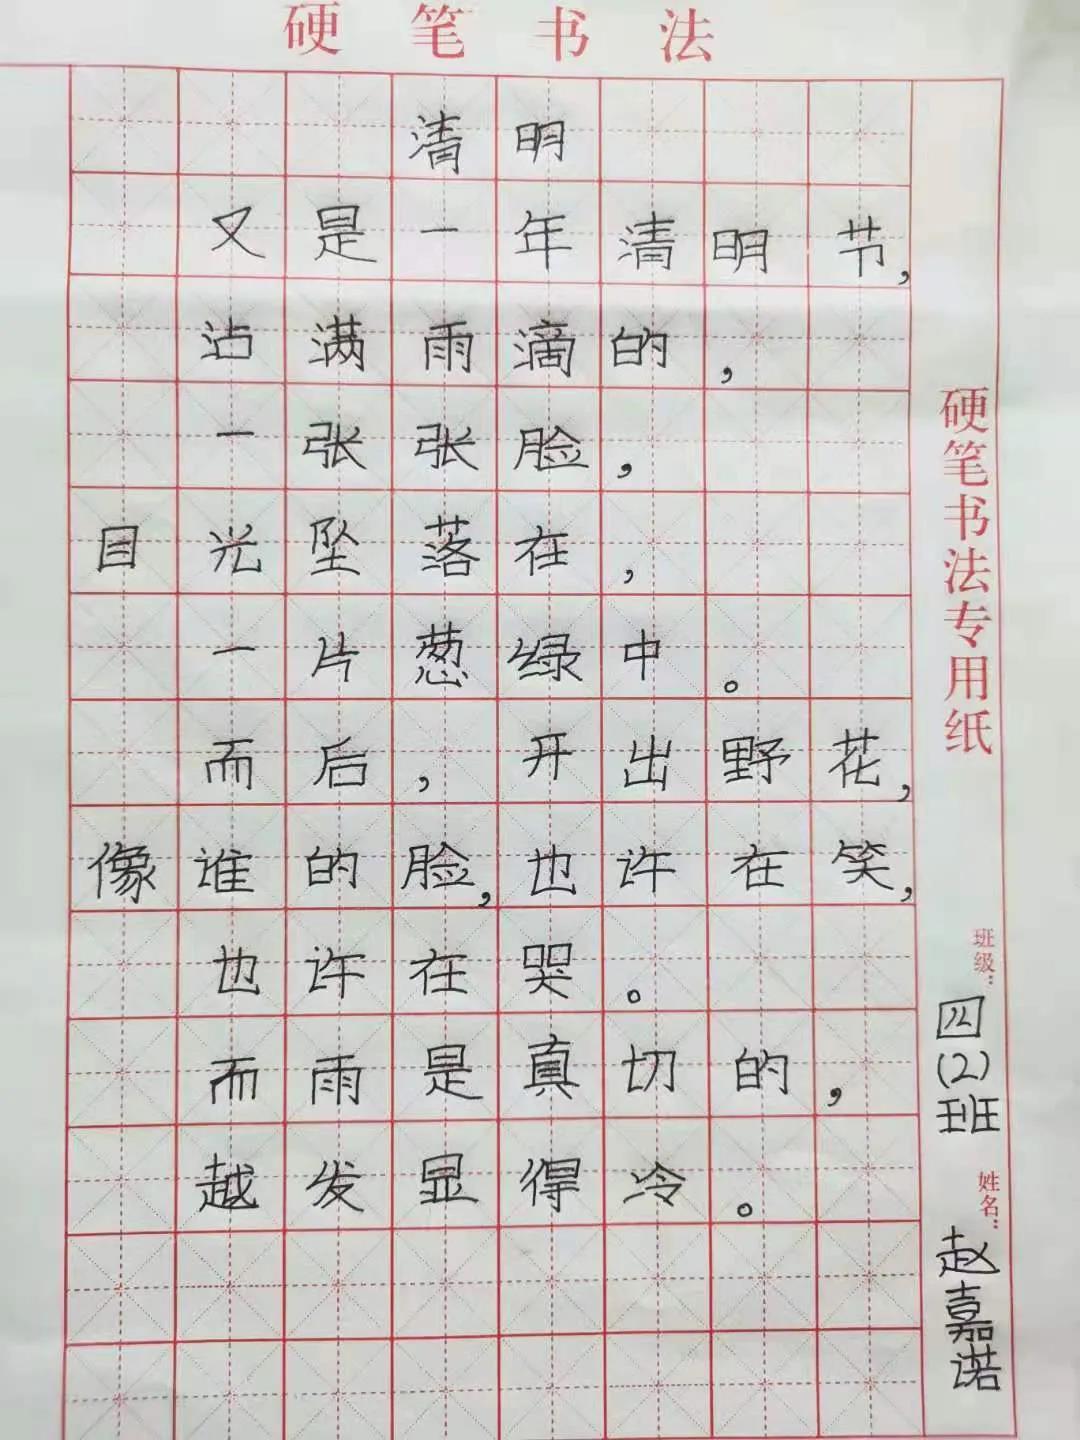 硬笔书法
清明
又是一年清明节,
沾满雨滴的,
一张张脸,
目光坠落在,
一片葱绿中。
而后,开出野花,
像谁的脸,也许在笑,
也许在哭。
而雨是真切的,
越发显得冷。
硬笔书法专用纸
班级:四(2)班
姓名:赵嘉诺